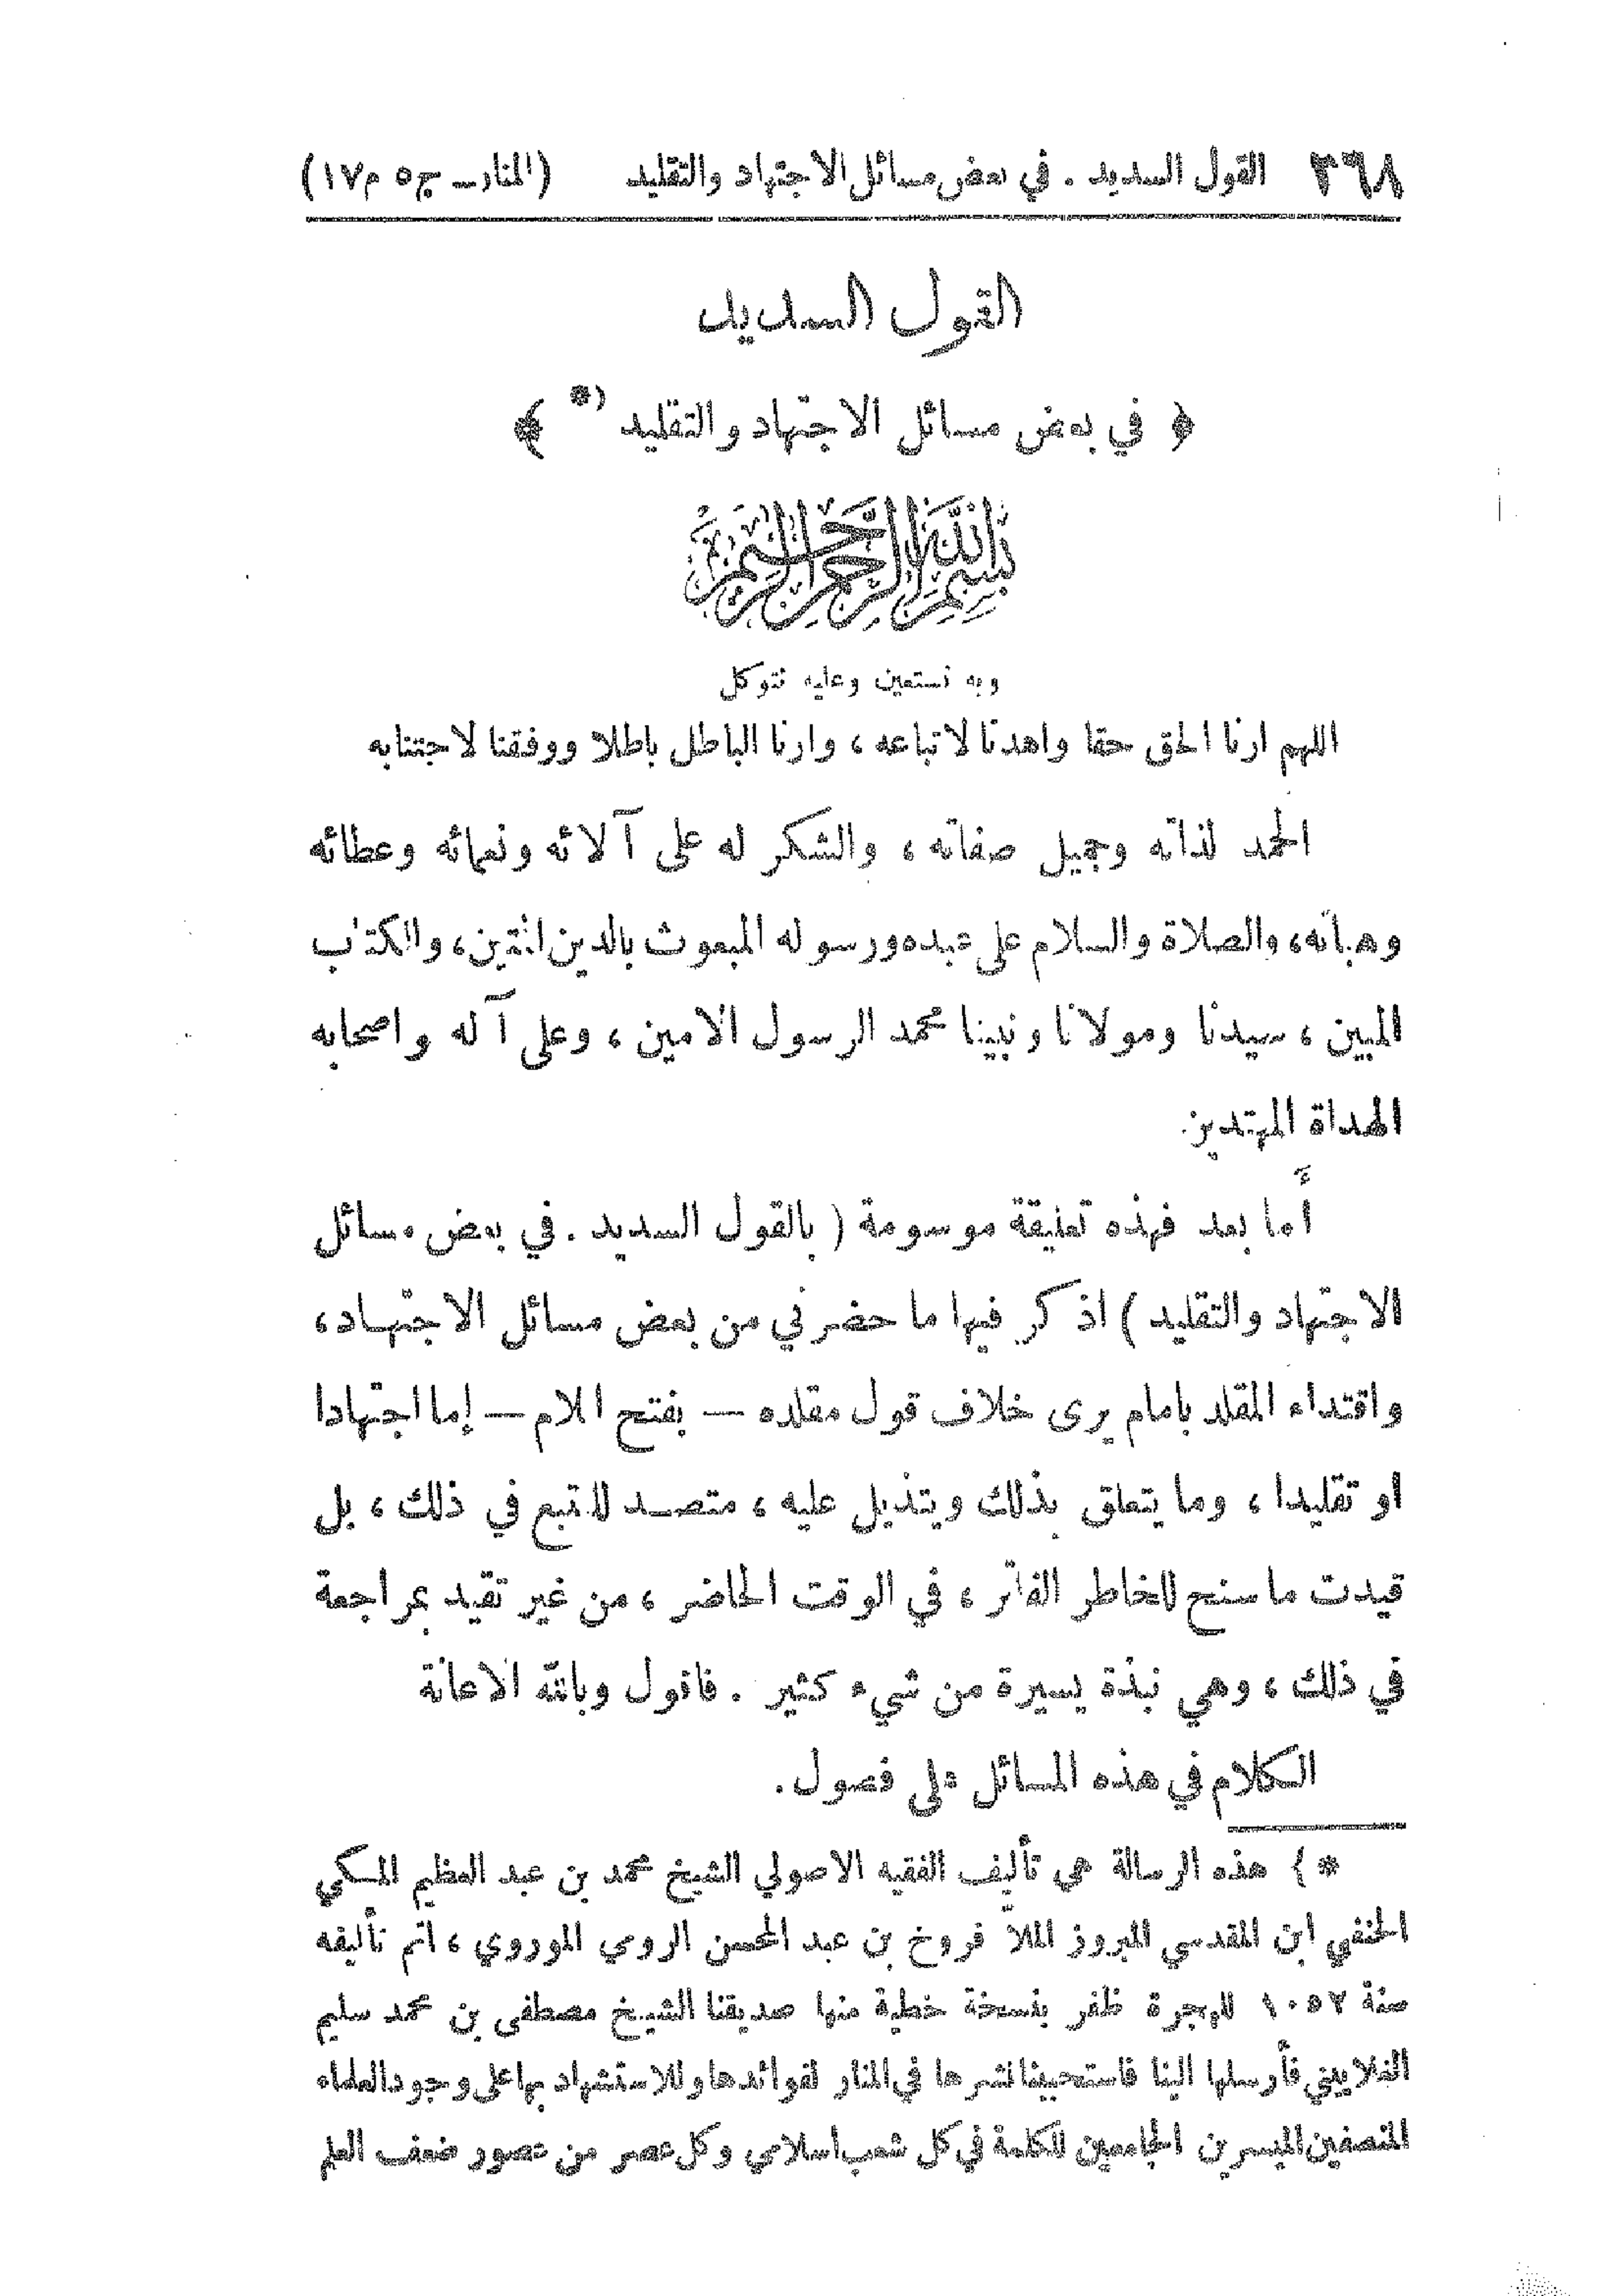 ٣٦٨ القول السديد . في بعض مسائل الاجتهاد والتقليد (المنار ـ ج ٥ م ١٧)
القول السديد
﴿ في بعض مسائل الاجتهاد والتقليد *) ﴾
بسم الله الرحمن الرحيم
وبه نستعين وعليه نتوكل
اللهم ارنا الحق حقا واهدنا لاتباعه ، وارنا الباطل باطلا ووفقنا لاجتنابه
الحمد لذاته وجميل صفاته ، والشكر له على آلائه ونعمائه وعطائه
وهباته، والصلاة والسلام على عبده ورسوله المبعوث بالدين المتين، والكتاب
المبين ، سيدنا ومولانا ونبينا محمد الرسول الامين ، وعلى آله واصحابه
الهداة المهتدين
أما بعد فهذه تعليقة موسومة ( بالقول السديد . في بعض مسائل
الاجتهاد والتقليد ) اذكر فيها ما حضرني من بعض مسائل الاجتهـاد ،
واقتداء المقلد بامام يرى خلاف قول مقلده — بفتح اللام — إما اجتهادا
او تقليدا ، وما يتعلق بذلك ويتذيل عليه ، متصـد للتتبع في ذلك ، بل
قيدت ما سنح للخاطر الفاتر ، في الوقت الحاضر ، من غير تقيد بمراجعة
في ذلك ، وهي نبذة يسيرة من شيء كثير . فاقول وبالله الاعانة
الكلام في هذه المسائل على فصول .
*) هذه الرسالة هي تأليف الفقيه الاصولي الشيخ محمد بن عبد العظيم المكي
الحنفي ابن المقدسي المبروز الملّا فروخ بن عبد المحسن الرومي الموروي ، اتم تأليفه
سنة ١٠٥٢ للهجرة ظفر بنسخة خطية منها صديقنا الشيخ مصطفى بن محمد سليم
الغلاييني فأرسلها الينا فاستحسنا نشرها في المنار لفوائدها وللاستشهاد بها على وجود العلماء
المنصفين الميسرين الجامعين للكلمة في كل شعب اسلامي وكل عصر من عصور ضعف العلم